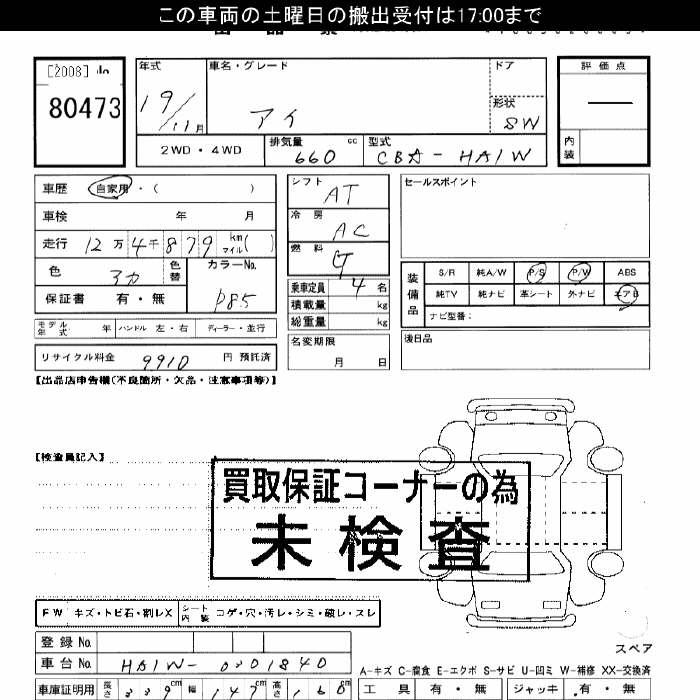 この車両の土曜日の搬出受付は17:00まで
[2008]
80473
年式 車名・グレード ドア 評価点
19/11月 アイ 形状 SW
2WD・4WD 排気量 660 cc 型式 CBA-HA1W 内装
車歴 自家用・( ) シフト AT セールスポイント
車検 年 月 冷房 AC
走行 12万4千879 km マイル( ) 燃料 G
色 アカ 色替 カラーNo. P85
乗車定員 4名
保証書 有・無 積載量 kg
総重量 kg
装備品 S/R 純A/W P/S P/W ABS
純TV 純ナビ 革シート 外ナビ エアB
ナビ型番:
モデル年式 年 ハンドル 左・右 ディーラー・並行
名変期限 月 日 後日品
リサイクル料金 9910 円 預託済
【出品店申告欄(不良箇所・欠品・注意事項等)】
【検査員記入】
買取保証コーナーの為
未検査
FW キズ・トビ石・割レX シート内装 コゲ・穴・汚レ・シミ・破レ・スレ
登録No.
スペア
車台No. HA1W-0301840
A-キズ C-腐食 E-エクボ S-サビ U-凹ミ W-補修 XX-交換済
車庫証明用 長さ 339cm 幅 147cm 高さ 160cm 工具 有・無 ジャッキ 有・無